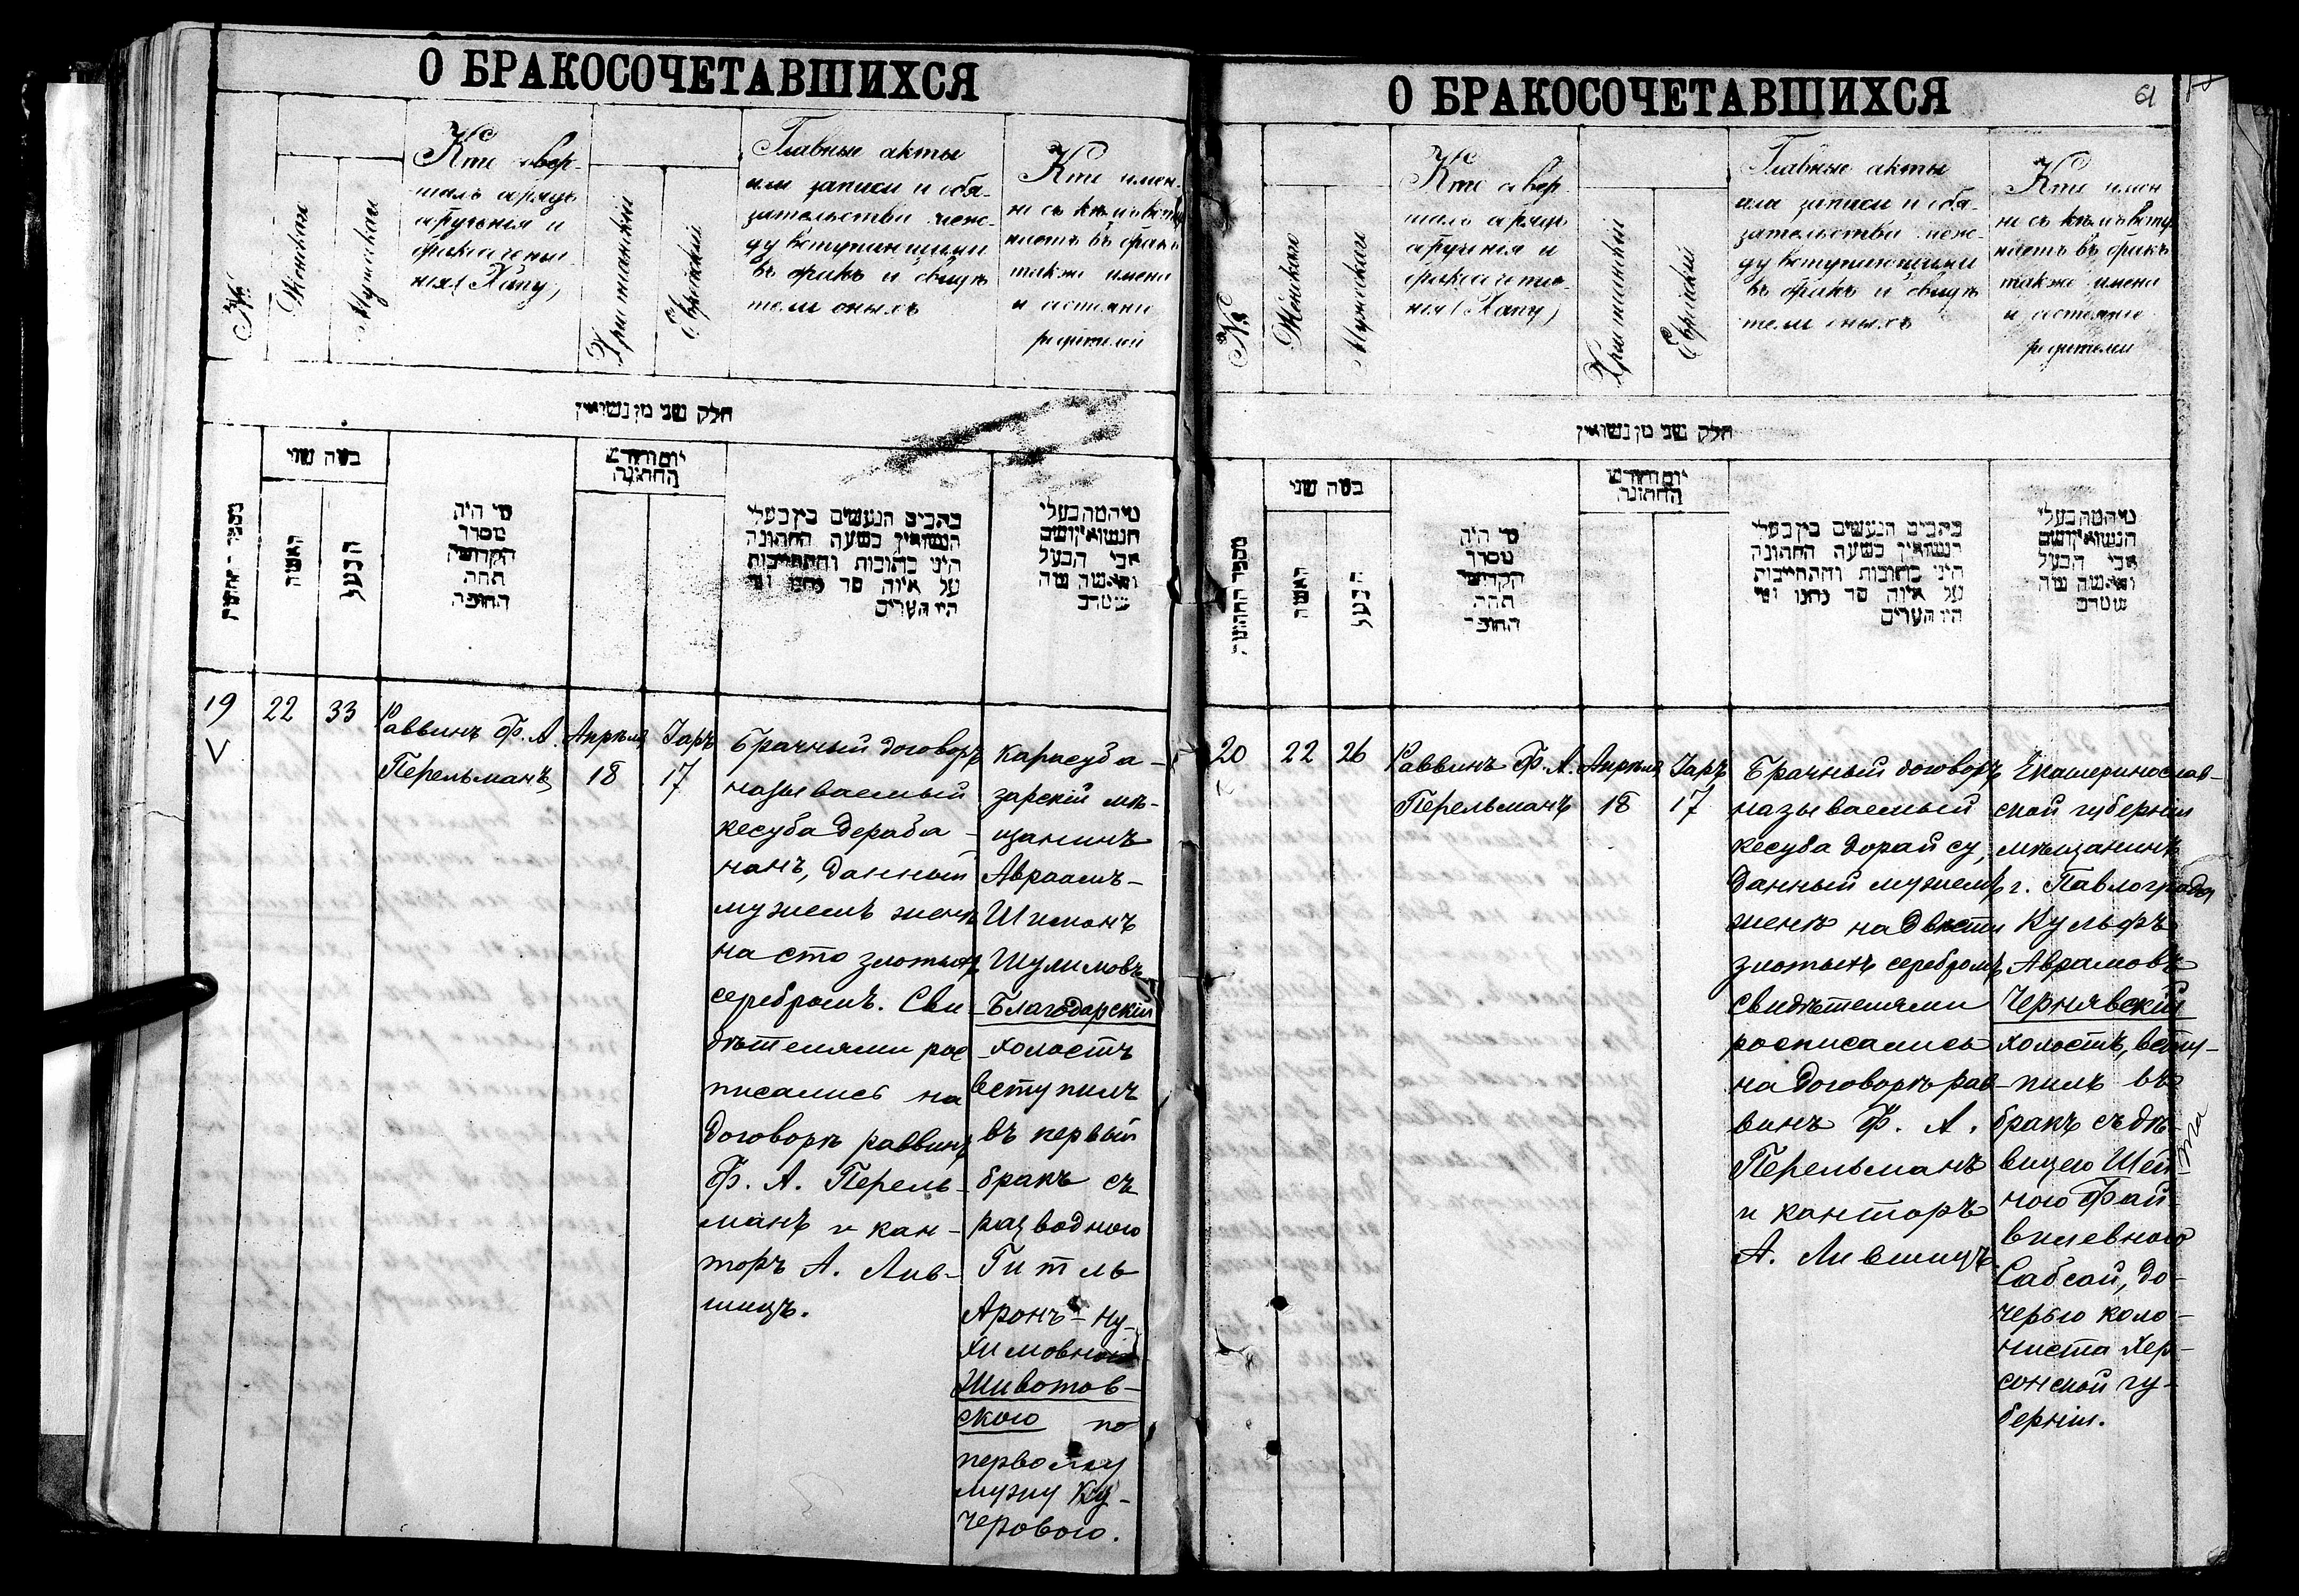 О БРАКОСОЧЕТАВШИХСЯ
№
Женская
Мужеская
Кто совер-
шалъ обрядъ
обручения и
бракосочета-
ния (Хупу)
Христианский
Еврейский
Главные акты
или записи и обя-
зательства меж-
ду вступившими
въ бракъ и свидѣ
тели оныхъ
Кто имен-
но съ кѣмъ всту
паетъ въ бракъ
также имена
и состояние
родителей
חלק שני מן נשואין
מספר החתונה
כמה שני
האשה
הבעל
מי היה
מסדר
הקדושין
תחת
החופה
יום וחודש
החתונה
כתבים הנעשים בין בעלי
הנשואין בשעה החתונה
היני כתובות והתחייבות
על איזה סך נתנו ומי
היו העדים
מיהמה בעלי
הנשואין ושם
אבי הבעל
והאשה
19
22
33
Раввинъ Ф. А.
Перельманъ
Апрѣля
18
Іаръ
17
Брачный договоръ
называемый
кесуба дераба-
нанъ, данный
мужемъ женѣ
на сто злотыхъ
серебромъ. Сви-
дѣтелями рос
писались на
договорѣ раввинъ
Ф. А. Перель-
манъ и кан-
торъ А. Лив-
шицъ.
Карасуба-
зарскій мѣ-
щанинъ
Авраамъ-
Шимонъ
Шулимовъ
Благодарскій
холостъ
вступилъ
въ первый
бракъ съ
разводного
Гитль
Аронъ-Ну-
химовною
Животов-
ского по
первому
мужу Ку-
черового.
О БРАКОСОЧЕТАВШИХСЯ
61
№
Женская
Мужеская
Кто совер-
шалъ обрядъ
обручения и
бракосочета-
ния (Хупу)
Христианский
Еврейский
Главные акты
или записи и обя-
зательства меж-
ду вступившими
въ бракъ и свидѣ
тели оныхъ
Кто имен
но съ кѣмъ всту
паетъ въ бракъ
также имена
и состояние
родителей
חלק שני מן נשואין
מספר החתונה
כמה שני
האשה
הבעל
מי היה
מסדר
הקדושין
תחת
החופה
יום וחודש
החתונה
כתבים הנעשים בין בעלי
הנשואין בשעה החתונה
היני כתובות והתחייבות
על איזה סך נתנו ומי
היו העדים
מיהמה בעלי
הנשואין ושם
אבי הבעל
והאשה
20
22
26
Раввинъ Ф. А.
Перельманъ
Апрѣля
18
Іаръ
17
Брачный договоръ
называемый
кесуба дорайсу,
данный мужемъ
женѣ на двѣсти
злотыхъ серебромъ,
свидѣтелями
росписались
на договорѣ рав-
винъ Ф. А.
Перельманъ
и канторъ
А. Лившицъ.
Екатеринослав-
ской губерніи
мѣщанинъ
г. Павлограда
Кульфъ
Аврамовъ
Чернявскій
холостъ, всту-
пилъ въ
бракъ съ дѣ-
вицею Шей-
ною Фай-
вилевною
Сабсай, до-
черью коло-
ниста Хер-
сонской гу-
берніи.